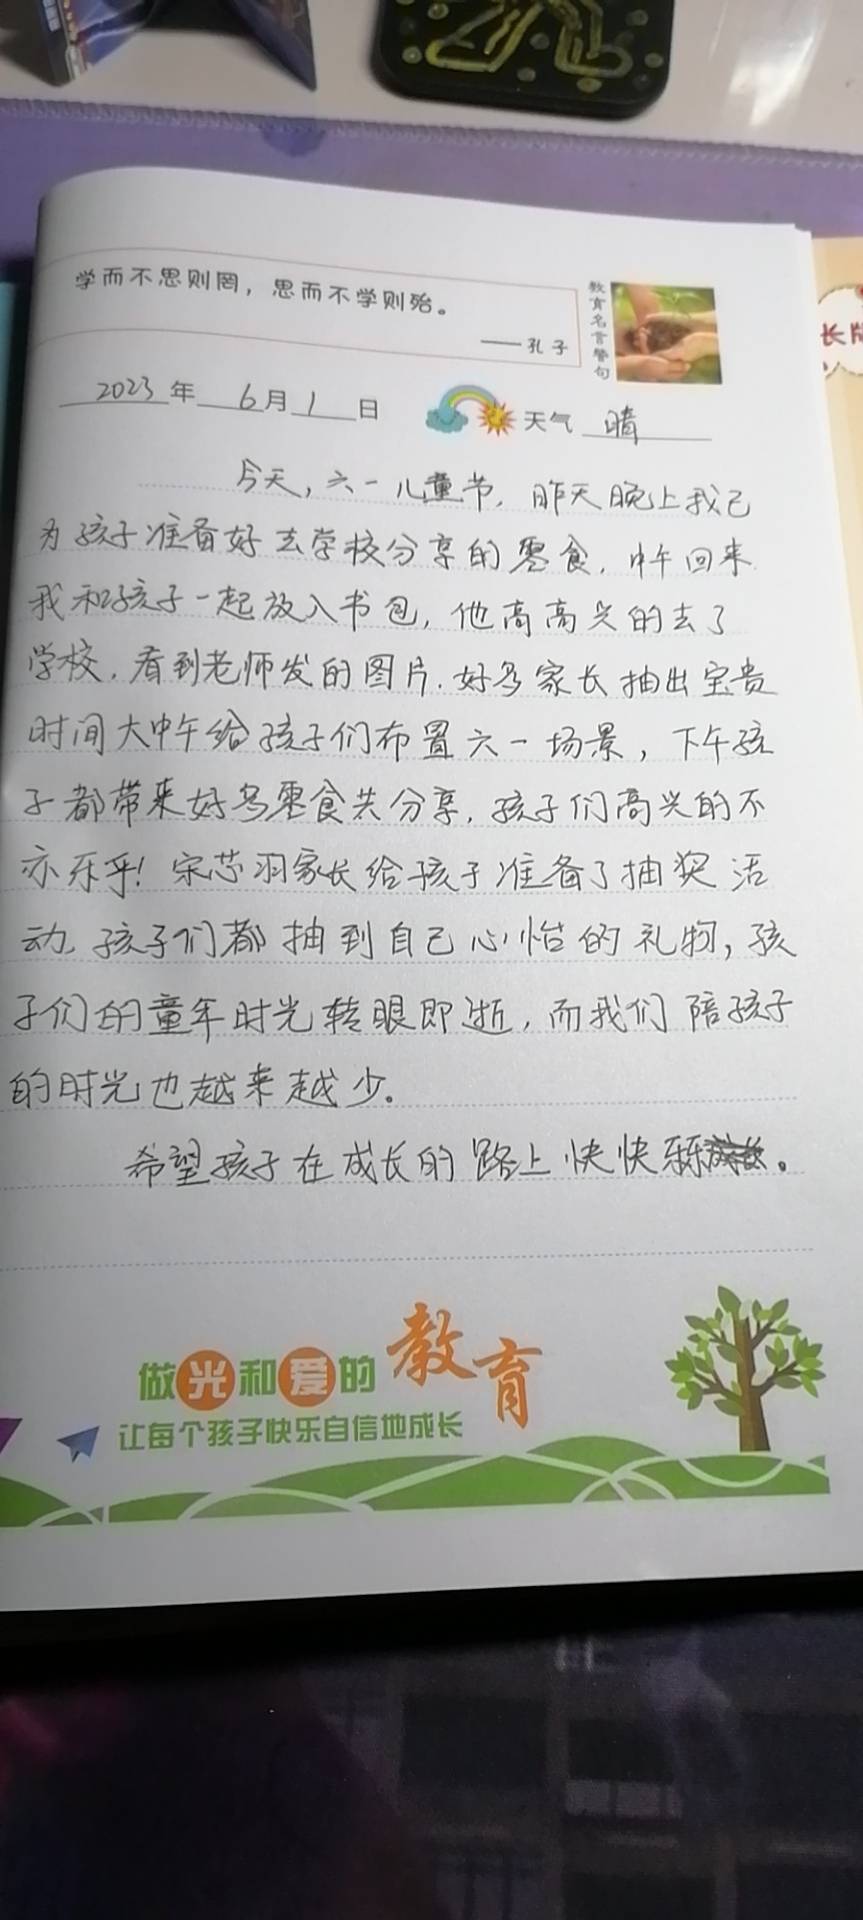 学而不思则罔，思而不学则殆。
——孔子
教育名言警句
长
2023年 6月1日 天气 晴
今天，六一儿童节，昨天晚上我已
为孩子准备好去学校分享的零食，中午回来
我和孩子一起放入书包，他高高兴的去了
学校，看到老师发的图片，好多家长抽出宝贵
时间大中午给孩子们布置六一场景，下午孩
子都带来好多零食共分享，孩子们高兴的不
亦乐乎！宋芯羽家长给孩子准备了抽奖活
动，孩子们都抽到自己心怡的礼物，孩
子们的童年时光转眼即逝，而我们陪孩子
的时光也越来越少。
希望孩子在成长的路上快快乐乐。
做光和爱的教育
让每个孩子快乐自信地成长